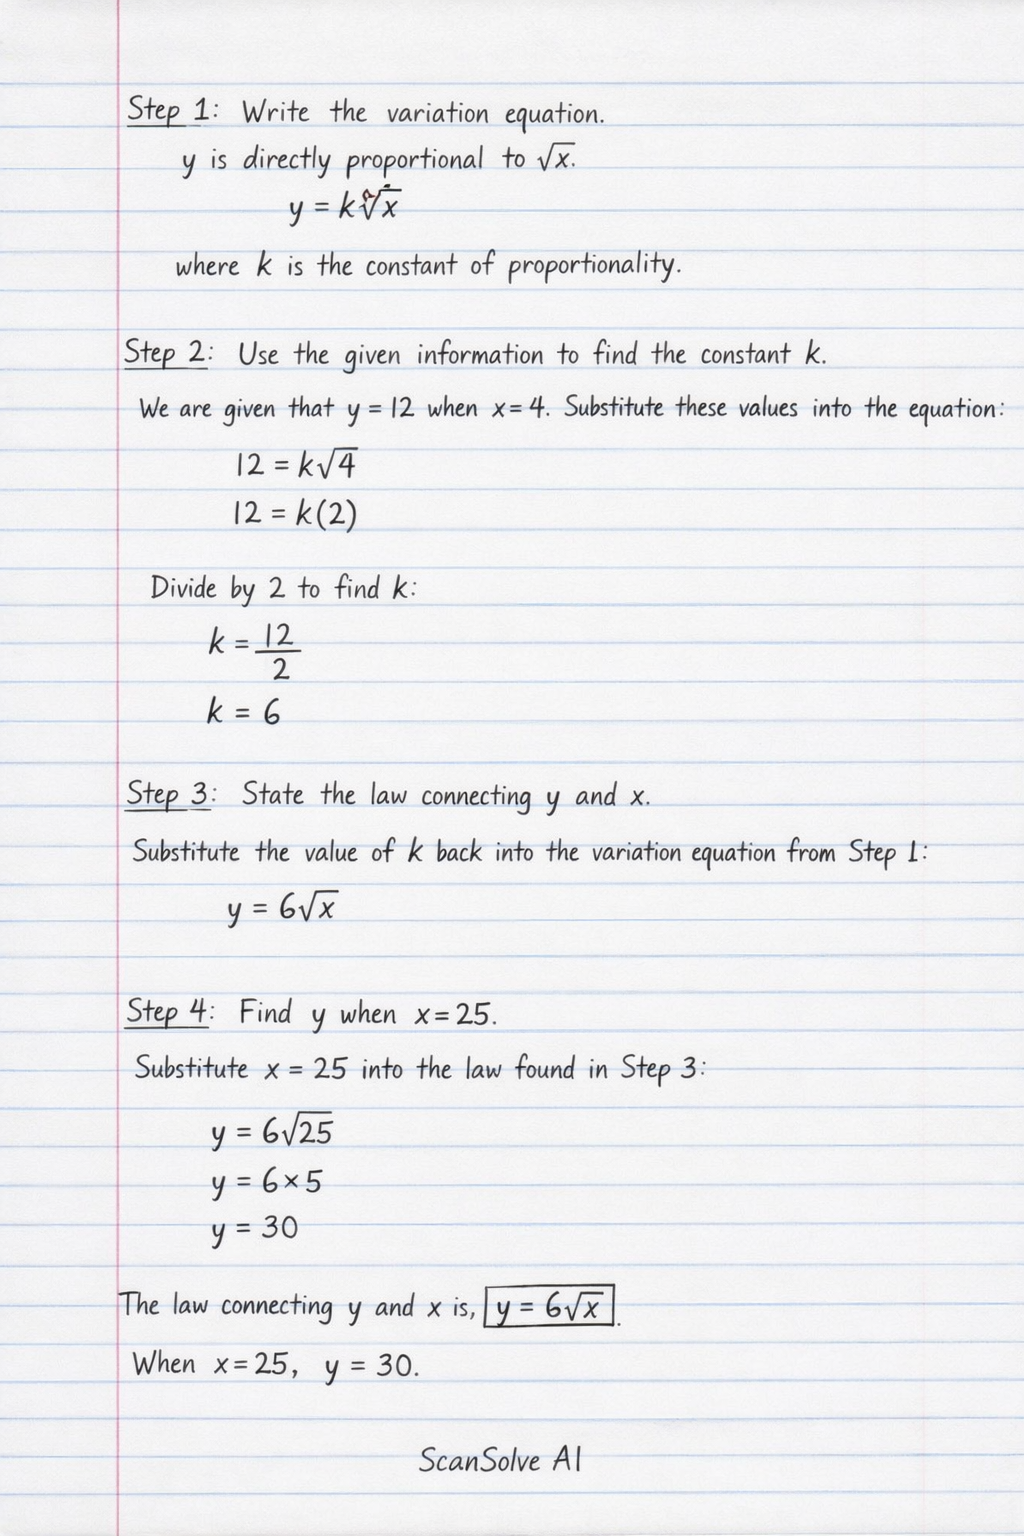 Step 1: Write the variation equation.
y is directly proportional to √x.
y = k√x
where k is the constant of proportionality.
Step 2: Use the given information to find the constant k.
We are given that y = 12 when x = 4. Substitute these values into the equation:
12 = k√4
12 = k(2)
Divide by 2 to find k:
k = 12/2
k = 6
Step 3: State the law connecting y and x.
Substitute the value of k back into the variation equation from Step 1:
y = 6√x
Step 4: Find y when x = 25.
Substitute x = 25 into the law found in Step 3:
y = 6√25
y = 6 × 5
y = 30
The law connecting y and x is, y = 6√x.
When x = 25, y = 30.
ScanSolve AI